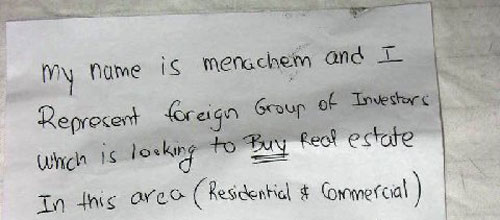 my name is menachem and I
Represent foreign Group of Investors
which is looking to Buy Real estate
In this area (Residential & Commercial)